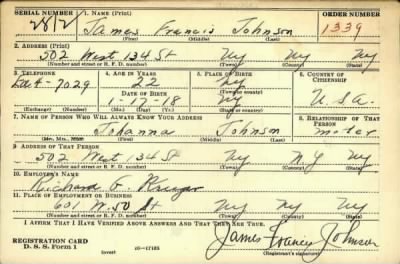 SERIAL NUMBER 1. NAME (Print) ORDER NUMBER
James Francis Johnson 1339
(First) (Middle) (Last)
2. ADDRESS (Print)
502 West 134 St Ny Ny Ny
(Number and street or R. F. D. number) (Town) (County) (State)
3. TELEPHONE 4. AGE IN YEARS 5. PLACE OF BIRTH 6. COUNTRY OF CITIZENSHIP
22 Ny
4-7029 DATE OF BIRTH (Town or county)
1-17-18 Ny U.S.A.
(Exchange) (Number) (Mo.) (Day) (Yr.) (State or country)
7. NAME OF PERSON WHO WILL ALWAYS KNOW YOUR ADDRESS 8. RELATIONSHIP OF THAT PERSON
Johanna Johnson
(Mr., Mrs., Miss) (First) (Middle) (Last)
9. ADDRESS OF THAT PERSON
502 West 134 St Ny N.Y Ny
(Number and street or R. F. D. number) (Town) (County) (State)
10. EMPLOYER'S NAME
Richard G.
11. PLACE OF EMPLOYMENT OR BUSINESS
601 W. 50 St Ny Ny
(Number and street or R. F. D. number) (Town) (County) (State)
I AFFIRM THAT I HAVE VERIFIED ABOVE ANSWERS AND THAT THEY ARE TRUE.
REGISTRATION CARD
D. S. S. Form 1 (over) James Francis Johnson
(Registrant's signature)